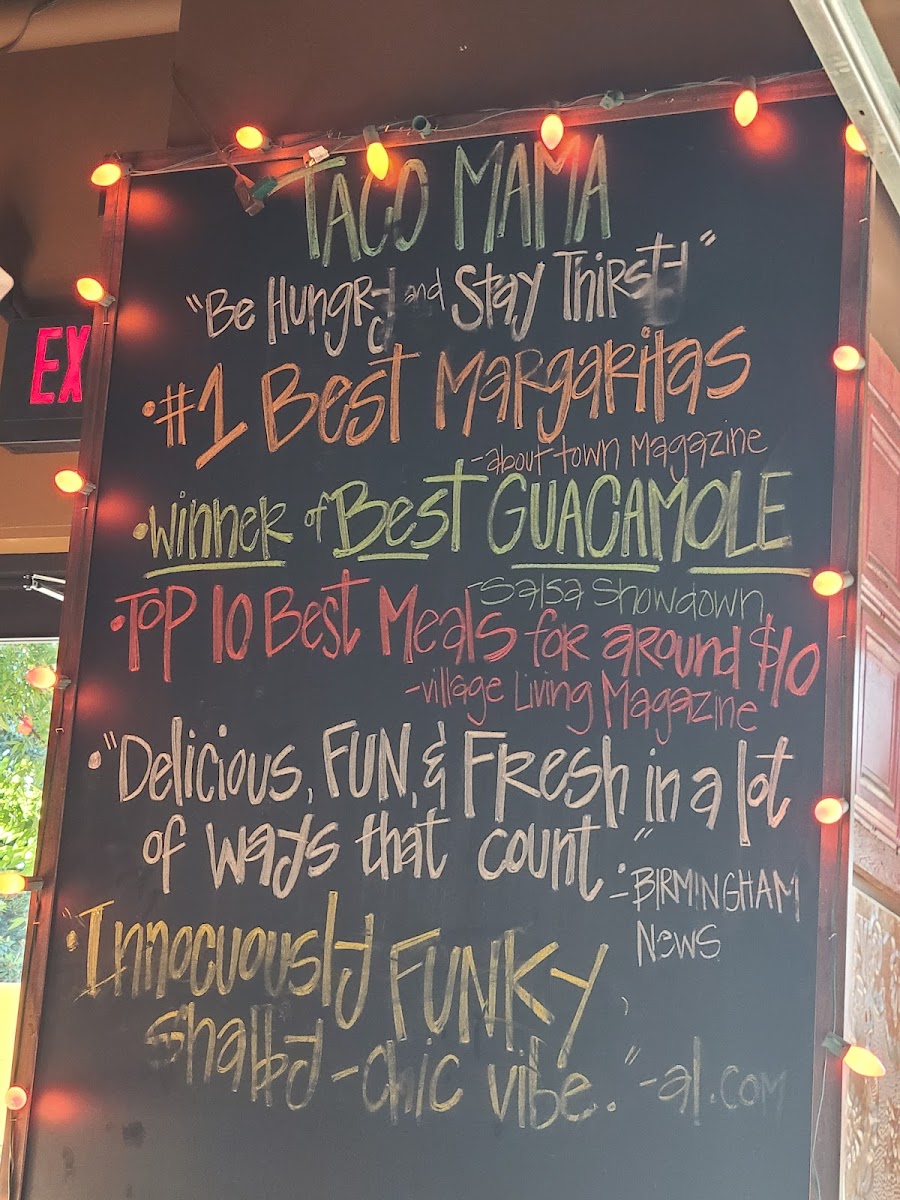 TACO MAMA
"Be Hungry and Stay Thirsty"
• #1 Best Margaritas
- about town Magazine
• Winner of Best GUACAMOLE
- Salsa Showdown
• Top 10 Best Meals for around $10
- Village Living Magazine
• "Delicious, FUN, & Fresh in a lot
of ways that count."
- BIRMINGHAM
News
• "Innocuously FUNKY
Shabby-chic vibe." - al.com
EX